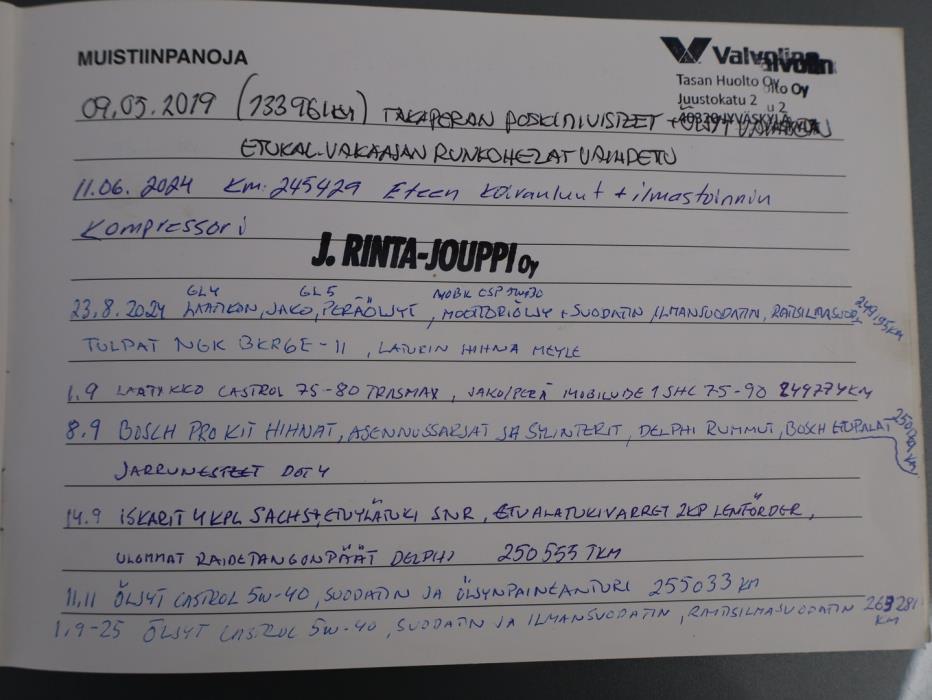 MUISTIINPANOJA
Valvoline
Tasan Huolto Oy
Juustokatu 2
40320 JYVÄSKYLÄ
09.05.2019 (133961km) TAKAPERÄN POSKITIIVISTEET +
ETUKAL.VAKAAJAN RUNKOHELAT VAIHDETU
11.06. 2024 Km: 245429 Eteen Koiranluut + ilmastoinnin
Kompressori
J. RINTA-JOUPPI Oy
GL4 GL5 MOBIL ESP 5W30
23.8.2024 LAATIKON, JAKO, PERÄÖLJYT, MOOTTORIÖLJY + SUODATIN, ILMANSUODATIN, RAITISILMASUOD. KM
TULPAT NGK BKR6E-11, LATURIN HIHNA MEYLE
1.9 LAATIKKO CASTROL 75-80 TRASMAX, JAKO/PERÄ MOBILUBE 1 SHC 75-90 249774KM
8.9 BOSCH PRO KIT HIHNAT, ASENNUSSARJAT JA SYLINTERIT, DELPHI RUMMUT, BOSCH ETUPALAT KM
JARRUNESTEET DOT4
14.9 ISKARIT 4KPL SACHS+ETUYLÄTUKI SNR, ETUALATUKIVARRET 2KP LEMFÖRDER,
ULOMMAT RAIDETANGONPÄÄT DELPHI 250555 TKM
11.11 ÖLJYT CASTROL 5W-40, SUODATIN JA ÖLJYNPAINEANTURI 255033 KM
1.9-25 ÖLJYT CASTROL 5W-40, SUODATIN JA ILMANSUODATIN, RAITISILMASUODATIN 263281
KM